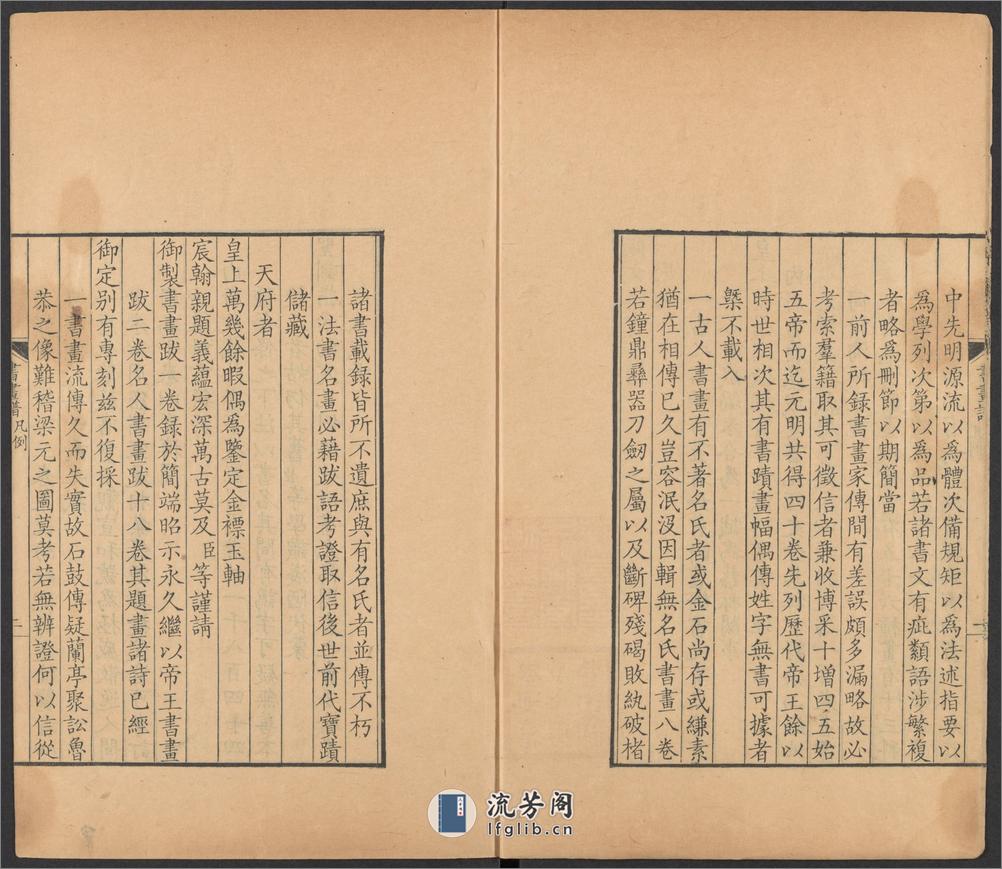 中先明源流以為體次備規矩以為法述指要以
為學列次第以為品若諸書文有疵纇語涉繁複
者略為刪節以期簡當
一前人所錄書畫家傳間有差誤頗多漏略故必
考索羣籍取其可徵信者兼收博采十增四五始
五帝而迄元明共得四十卷先列歷代帝王餘以
時世相次其有書蹟畫幅偶傳姓字無書可據者
槩不載入
一古人書畫有不著名氏者或金石尚存或縑素
猶在相傳已久豈容泯沒因輯無名氏書畫八卷
若鐘鼎彞器刀劒之屬以及斷碑殘碣敗紈破楮
諸書載錄皆所不遺庶與有名氏者並傳不朽
一法書名畫必藉跋語考證取信後世前代寶蹟
儲藏
天府者
皇上萬幾餘暇偶為鑒定金褾玉軸
宸翰親題義蘊宏深萬古莫及臣等謹請
御製書畫跋一卷錄於簡端昭示永久繼以帝王書畫
跋二卷名人書畫跋十八卷其題畫諸詩已經
御定別有專刻茲不復採
一書畫流傳久而失實故石鼓傳疑蘭亭聚訟魯
恭之像難稽梁元之圖莫考若無辨證何以信從
書畫譜凡例
二
流芳阁
lfglib.cn